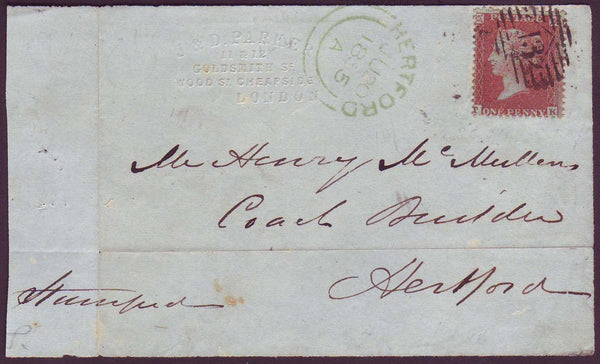 J & D. PARKER
11 & 12
GOLDSMITH ST
WOOD ST CHEAPSIDE
LONDON
HERTFORD
JU 20
1855
A
POSTAGE
ONE PENNY
K
Mr Henry McMullens
Coach Builder
Hertford
Stamped